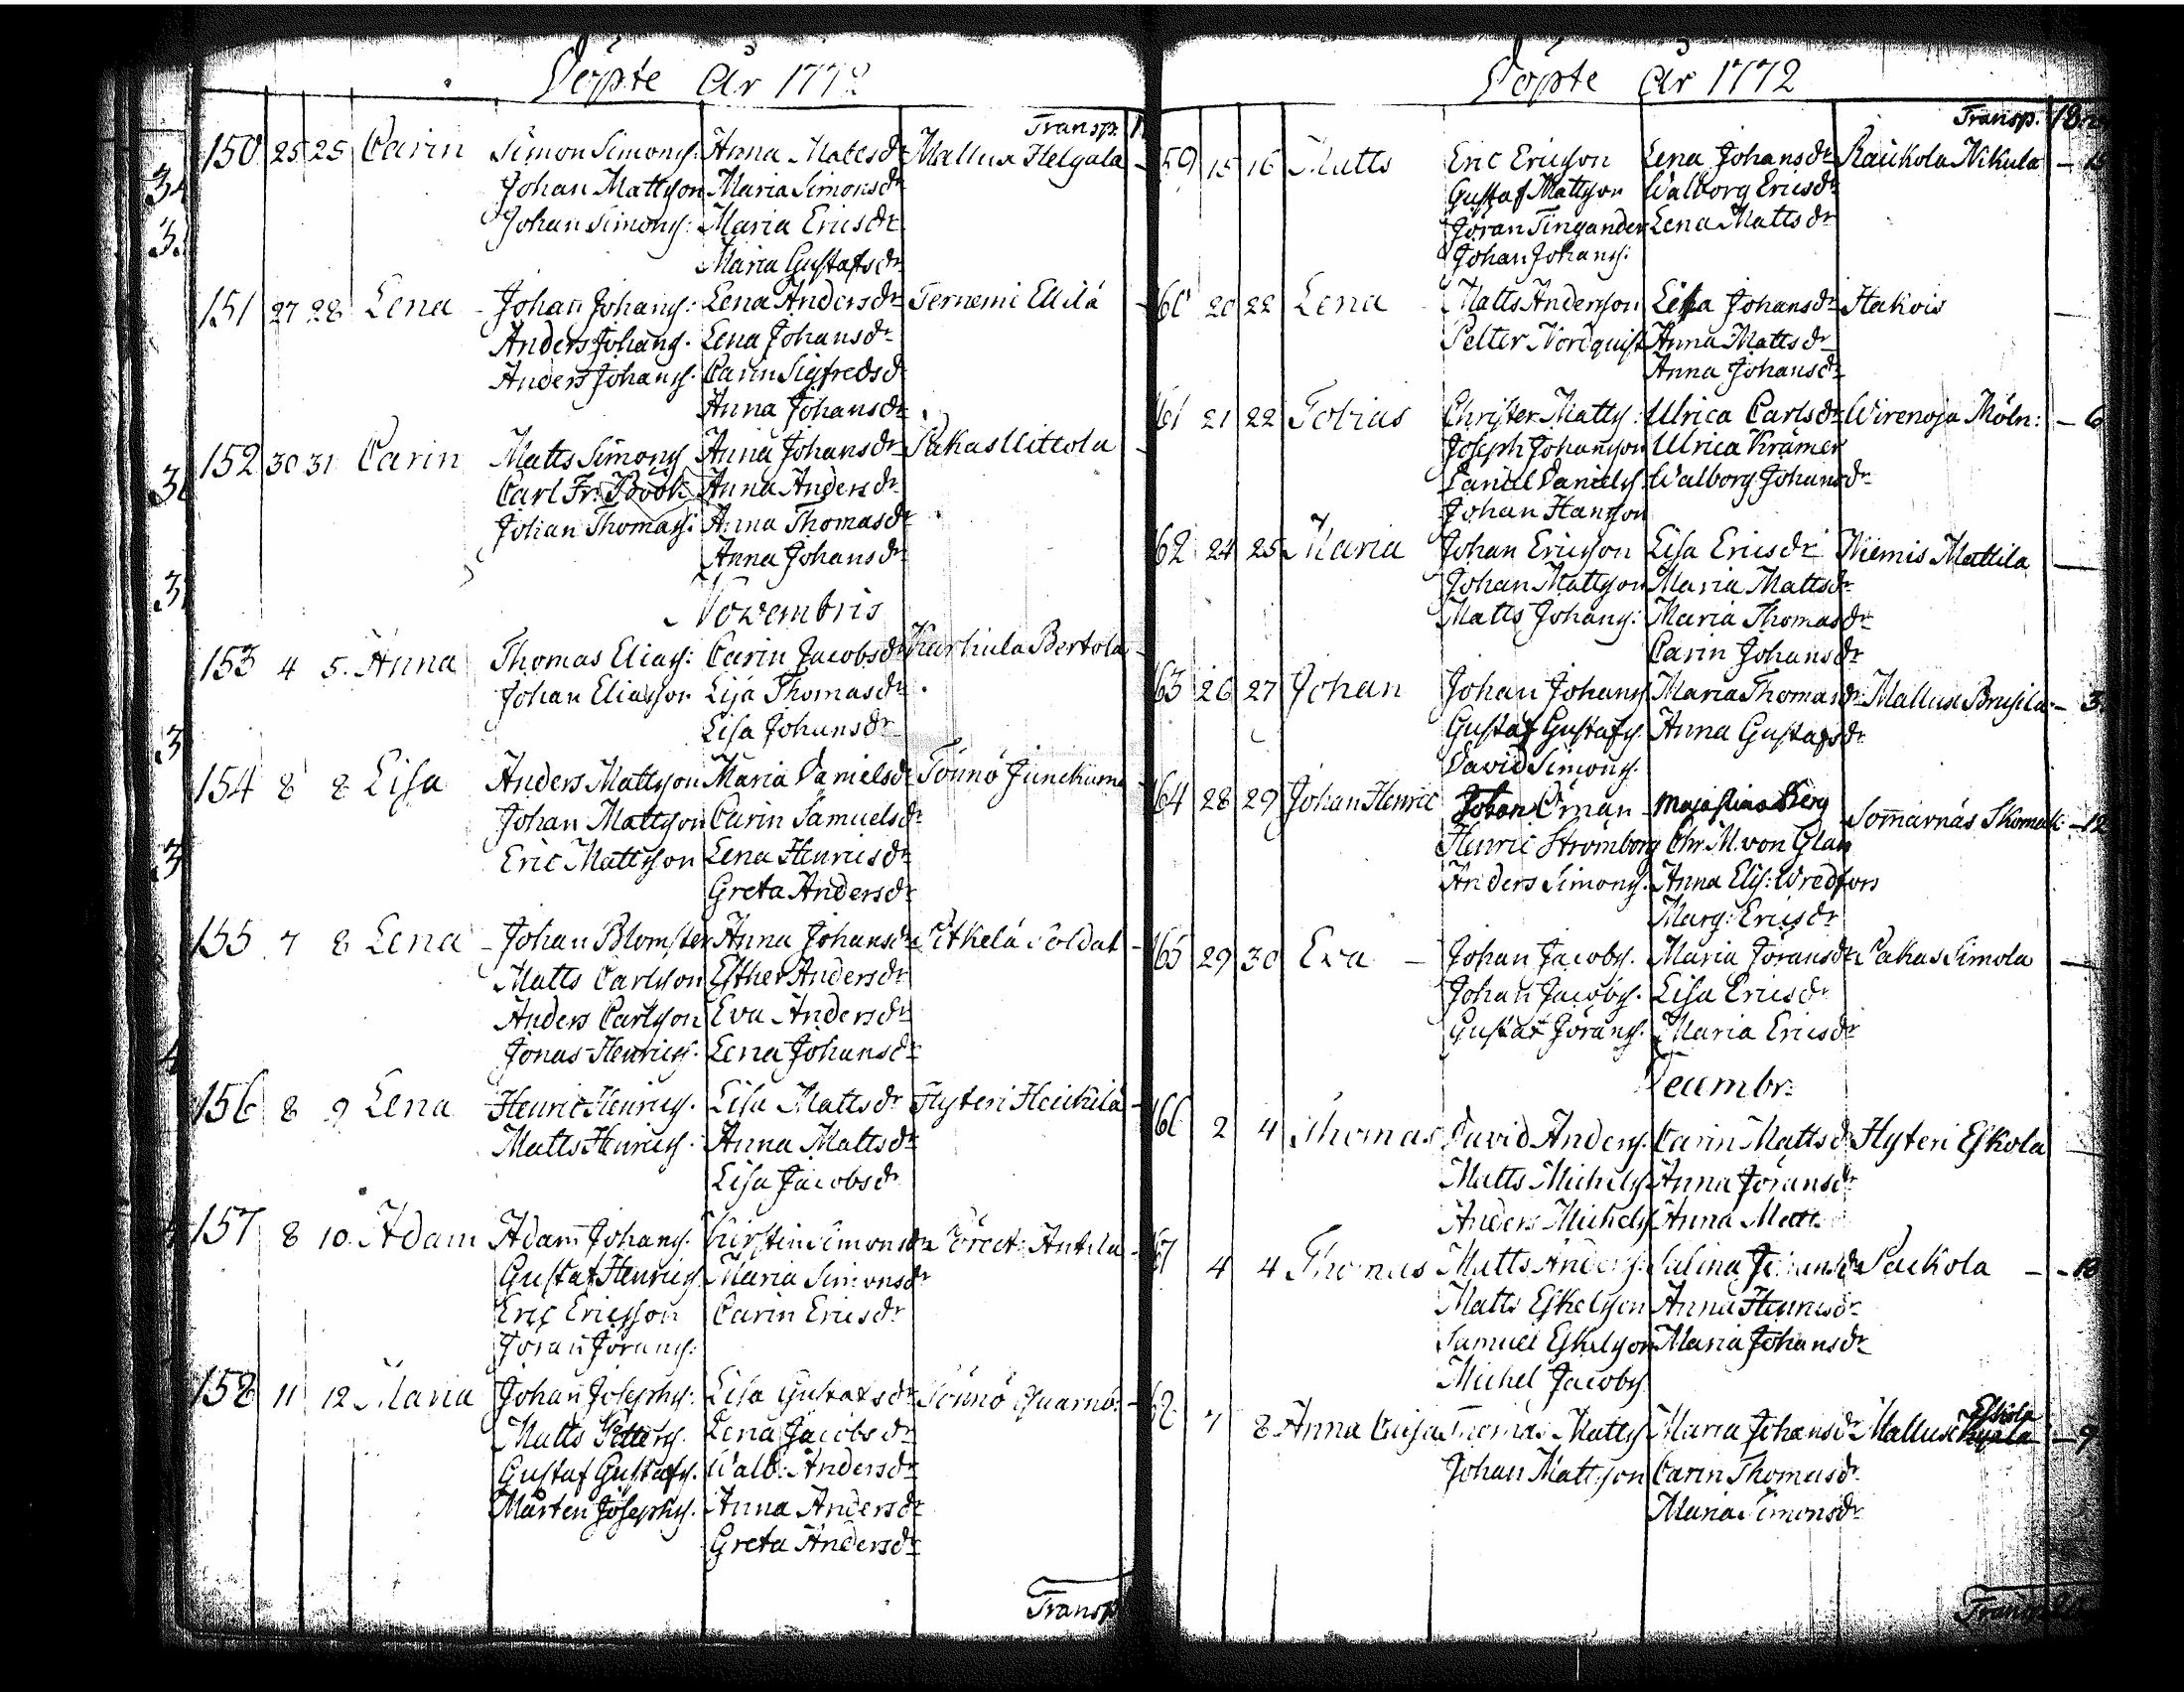 Döpte År 1772
Transp.
150 25 25 Carin Simon Simons: Anna Matts dr Mallus Helgala
Johan Mattsson Maria Simonsdr
Johan Simons: Maria Ericsdr
Maria Gustafsdr
151 27 28 Lena Johan Johans: Lena Andersdr Ternemi Ellilä
Anders Johans. Lena Johansdr
Anders Johans. Carin Sigfredsdr
Anna Johansdr
152 30 31 Carin Matts Simons Anna Johansdr Pakas Uittola
Carl Fr. Böök Anna Andersdr
Johan Thomas: Anna Thomasdr
Anna Johansdr
Novembris
153 4 5. Anna Thomas Elias: Carin Jacobsdr Karhula Bertola
Johan Eliasson Lisa Thomasdr
Lisa Johansdr
154 8 8 Lisa Anders Mattsson Maria Danielsdr Tönnö
Johan Mattsson Carin Samuelsdr
Eric Mattsson Lena Henricsdr
Greta Andersdr
155 7 8 Lena Johan Blomster Anna Johansdr Pitkelä Soldat
Matts Carlsson Esther Andersdr
Anders Carlsson Eva Andersdr
Jonas Henrics. Lena Johansdr
156 8 9 Lena Henric Henrics. Lisa Mattsdr Hyteri Heickilä
Matts Henrics. Anna Mattsdr
Lisa Jacobsdr
157 8 10. Adam Adam Johans. Kirstin Simonsdr Antila
Gustaf Henrics Maria Simonsdr
Eric Ericsson Carin Ericsdr
Jöran Jörans:
158 11 12 Maria Johan Josephs: Lisa Gustafsdr Tönnö Quarnb:
Matts Petters. Lena Jacobsdr
Gustaf Gustafs. Walb: Andersdr
Mårten Josephs. Anna Andersdr
Greta Andersdr
Transp
Döpte År 1772
Transp.
59 15 16 Matts Eric Ericsson Lena Johansdr Raickola Nikula
Gustaf Mattsson Walborg Ericsdr
Jöran Tingander Lena Mattsdr
Johan Johans:
60 20 22 Lena Matts Andersson Lisa Johansdr Hakois
Petter Nordquist Anna Mattsdr
Anna Johansdr
61 21 22 Tobias Christer Matts: Ulrica Carlsdr Wirenoja Möln: 6
Joseph Johansson Ulrica Krämer
Daniel Daniels. Walborg Johansdr
Johan Hansson
62 24 25 Maria Johan Ericsson Lisa Ericsdr Niemis Mattila
Johan Mattsson Maria Mattsdr
Matts Johans: Maria Thomasdr
Carin Johansdr
63 26 27 Johan Johan Johans Maria Thomasdr Mallus Brusila 3
Gustaf Gustafs. Anna Gustafsdr
David Simons.
64 28 29 Johan Henric Johan Öman Maja Berg Som̄arnäs Skomak: 12
Henric Strömborg Chr. M. von Glan
Anders Simons. Anna Elis: Wredfors
Marg: Ericsdr
65 29 30 Eva Johan Jacobs. Maria Jöransdr Pakas Simola
Johan Jacobs. Lisa Ericsdr
Gustaf Jörans. Maria Ericsdr
Decembr:
66 2 4 Thomas David Anders. Carin Mattsdr Hyteri Eskola
Matts Michels Anna Jöransdr
Anders Michels Anna Matts
67 4 4 Thomas Matts Anders: Salina Johansdr Packola 10
Matts Eskelsson Anna Henricsdr
Samuel Eskelsson Maria Johansdr
Michel Jacobs
7 8 Anna Caisa Thomas Matts Maria Johansdr Mallus Eskola 9
Johan Mattsson Carin Thomasdr
Maria Simonsdr
Transp.